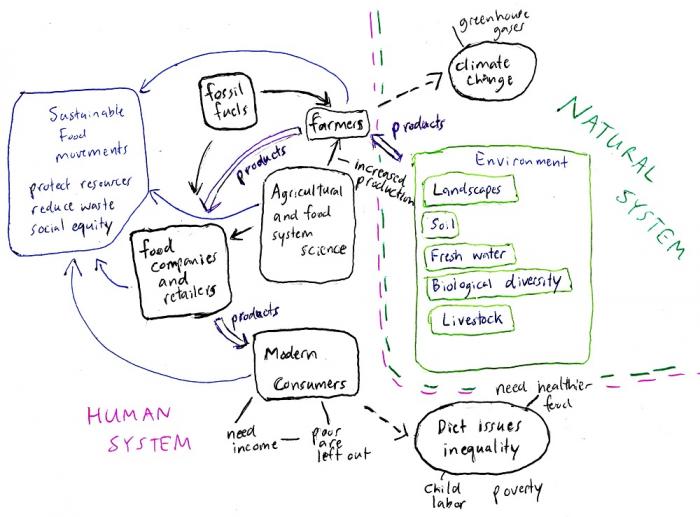 greenhouse
gases
climate
change
fossil
fuels
farmers
products
NATURAL
SYSTEM
Sustainable
Food
movements
protect resources
reduce waste
social equity
products
increased
production
Agricultural
and food
system
science
Environment
Landscapes
Soil
Fresh water
Biological diversity
Livestock
food
companies
and
retailers
products
Modern
Consumers
HUMAN
SYSTEM
need
income
poor
are
left out
need healthier
food
Diet issues
inequality
child
labor
poverty